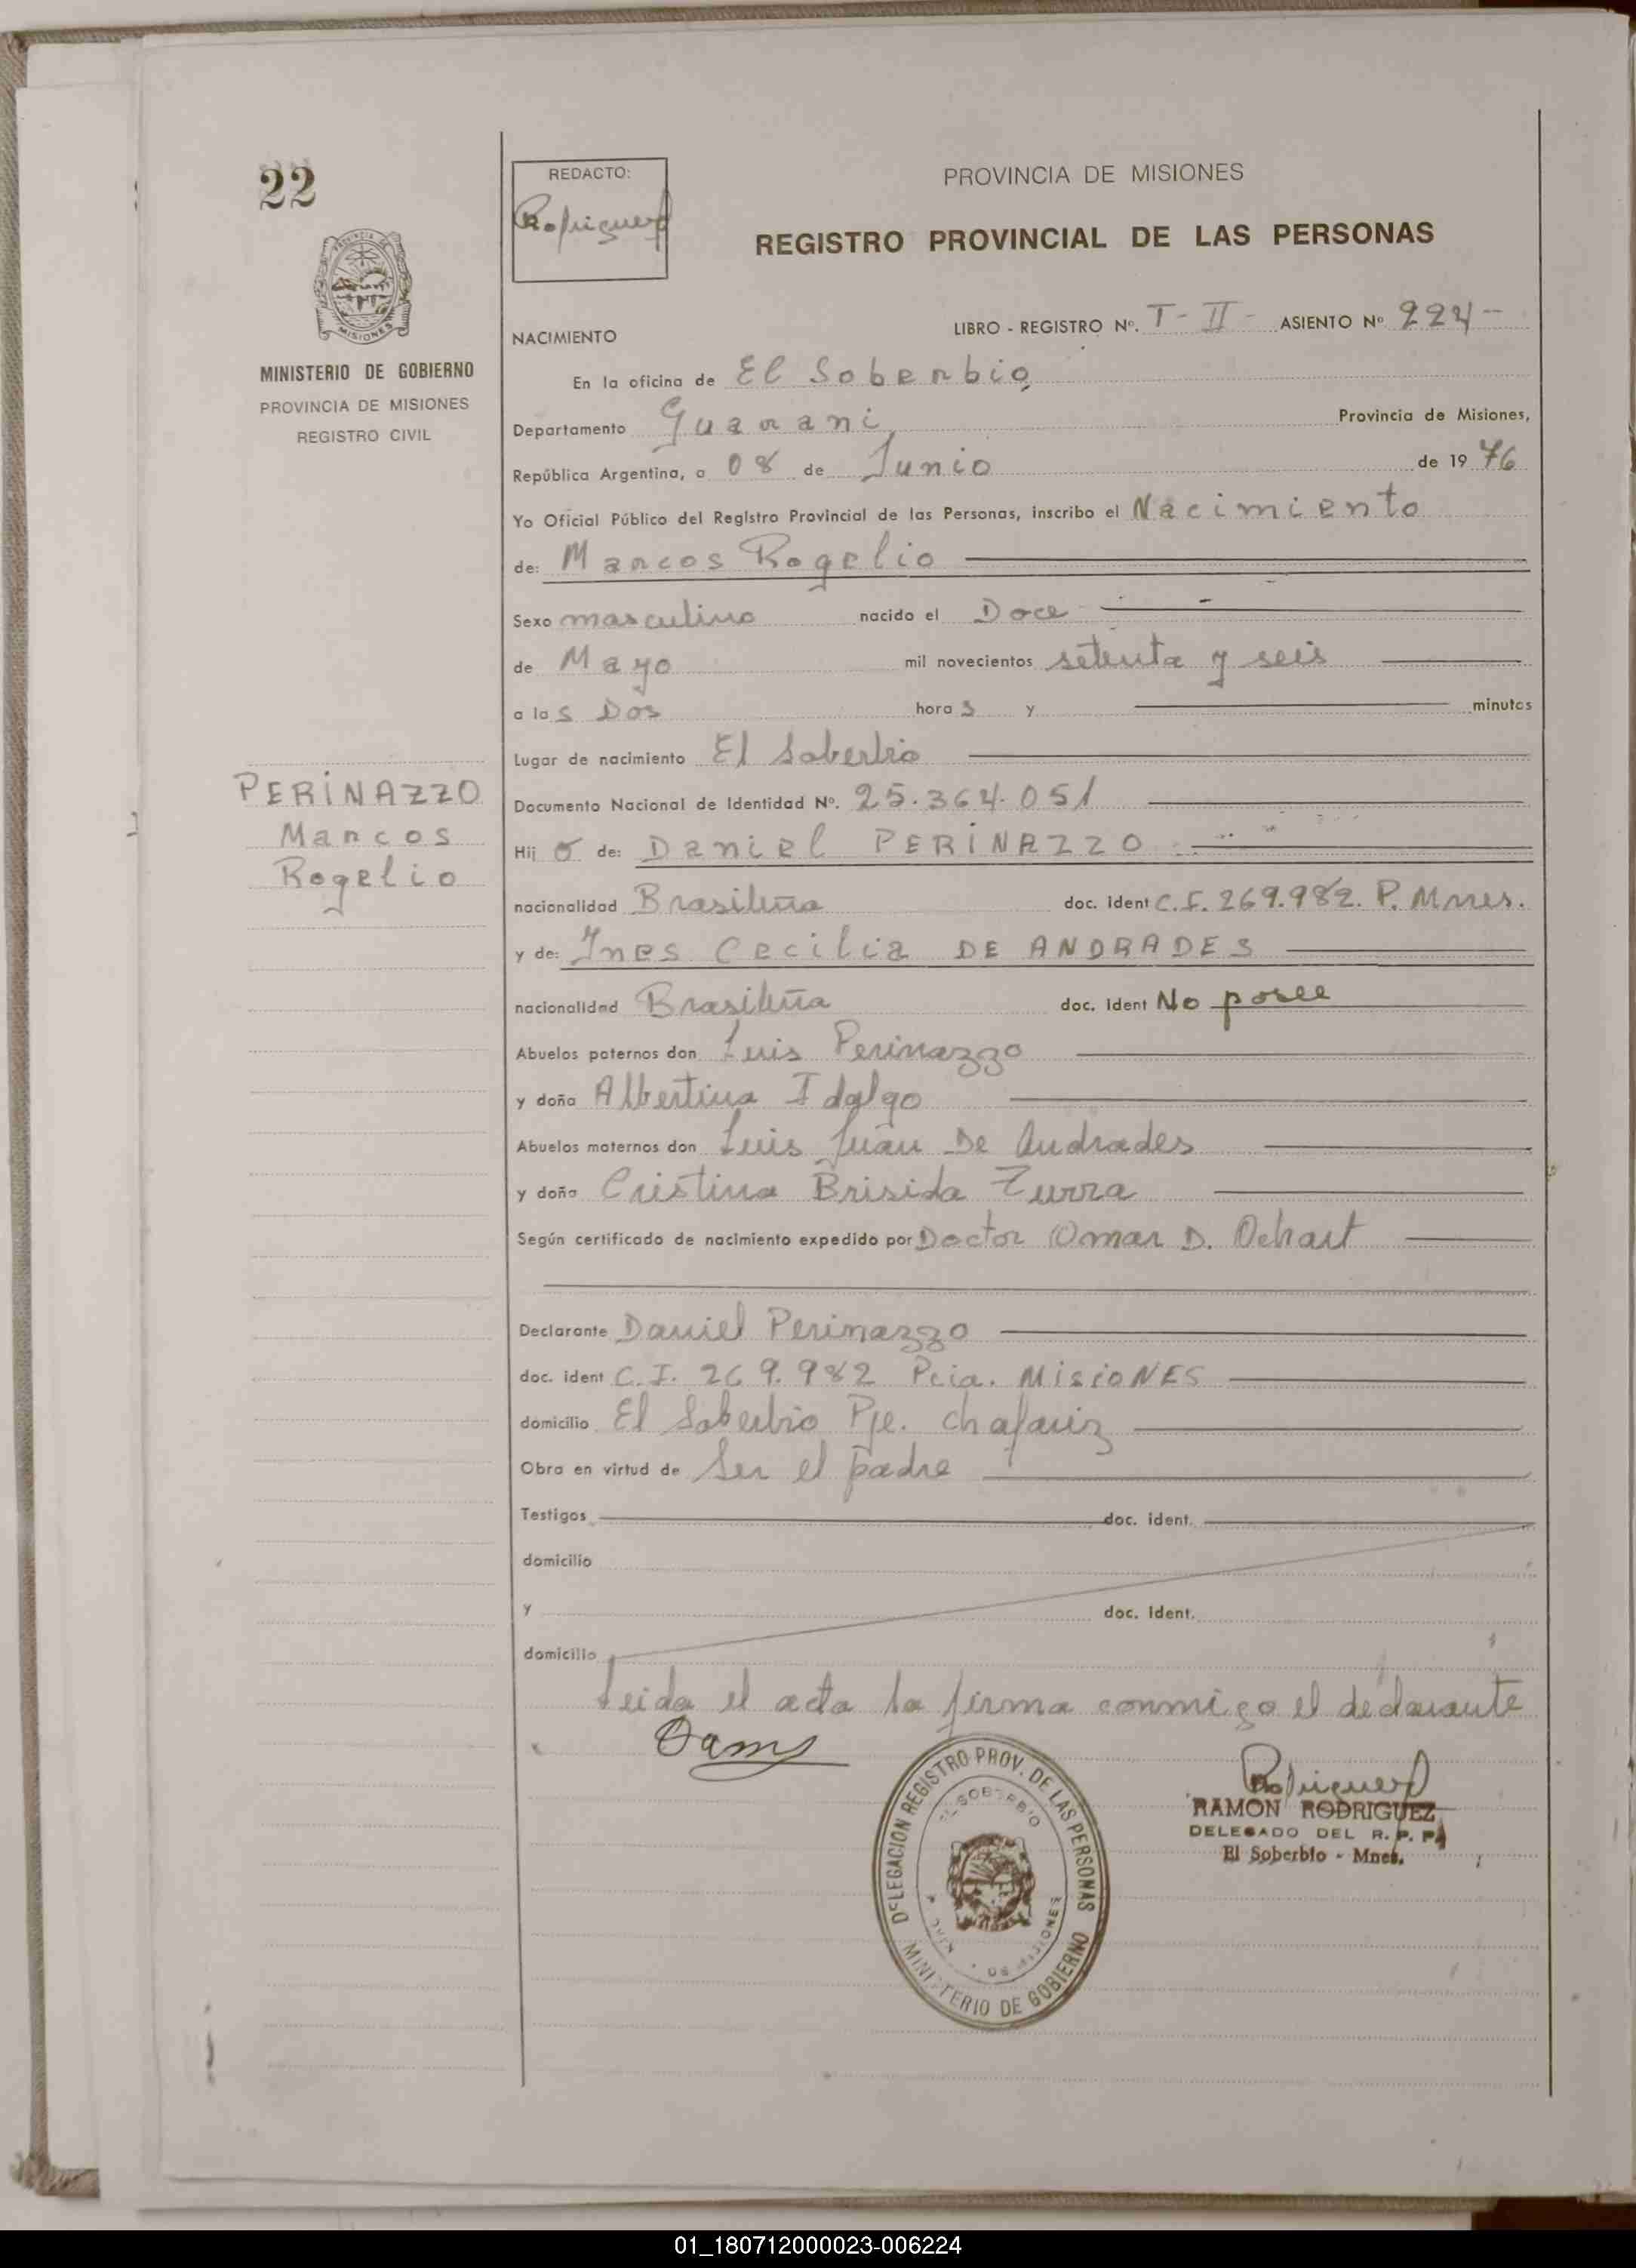 22
REDACTO:
Rodriguez
PROVINCIA DE MISIONES
REGISTRO PROVINCIAL DE LAS PERSONAS
MINISTERIO DE GOBIERNO
PROVINCIA DE MISIONES
REGISTRO CIVIL
NACIMIENTO
LIBRO - REGISTRO Nº. T - II - ASIENTO Nº 224 -
En la oficina de El Soberbio
Departamento Guarani Provincia de Misiones,
República Argentina, a 08 de Junio de 1976
Yo Oficial Público del Registro Provincial de las Personas, inscribo el Nacimiento
de: Marcos Rogelio
Sexo masculino nacido el Doce
de Mayo mil novecientos setenta y seis
a las Dos horas y minutos
Lugar de nacimiento El Soberbio
PERINAZZO
Marcos
Rogelio
Documento Nacional de Identidad Nº. 25.364.051
Hijo de: Daniel PERINAZZO
nacionalidad Brasileña doc. ident C.I. 269.982. P. Mnes.
y de: Ines Cecilia DE ANDRADES
nacionalidad Brasileña doc. ident No posee
Abuelos paternos don Luis Perinazzo
y doña Albertina Idalgo
Abuelos maternos don Luis Juan De Andrades
y doña Cristina Brisida Zurra
Según certificado de nacimiento expedido por Doctor Omar D. Ochart
Declarante Daniel Perinazzo
doc. ident C.I. 269.982 Pcia. MISIONES
domicilio El Soberbio Pje. Chafariz
Obra en virtud de Ser el padre
Testigos doc. ident.
domicilio
y doc. ident.
domicilio
Leida el acta la firma conmigo el declarante
Rodriguez
RAMON RODRIGUEZ
DELEGADO DEL R. P. P.
El Soberbio - Mnes.
DELEGACION REGISTRO PROV. DE LAS PERSONAS
EL SOBERBIO
MISIONES
MINISTERIO DE GOBIERNO
01_180712000023-006224